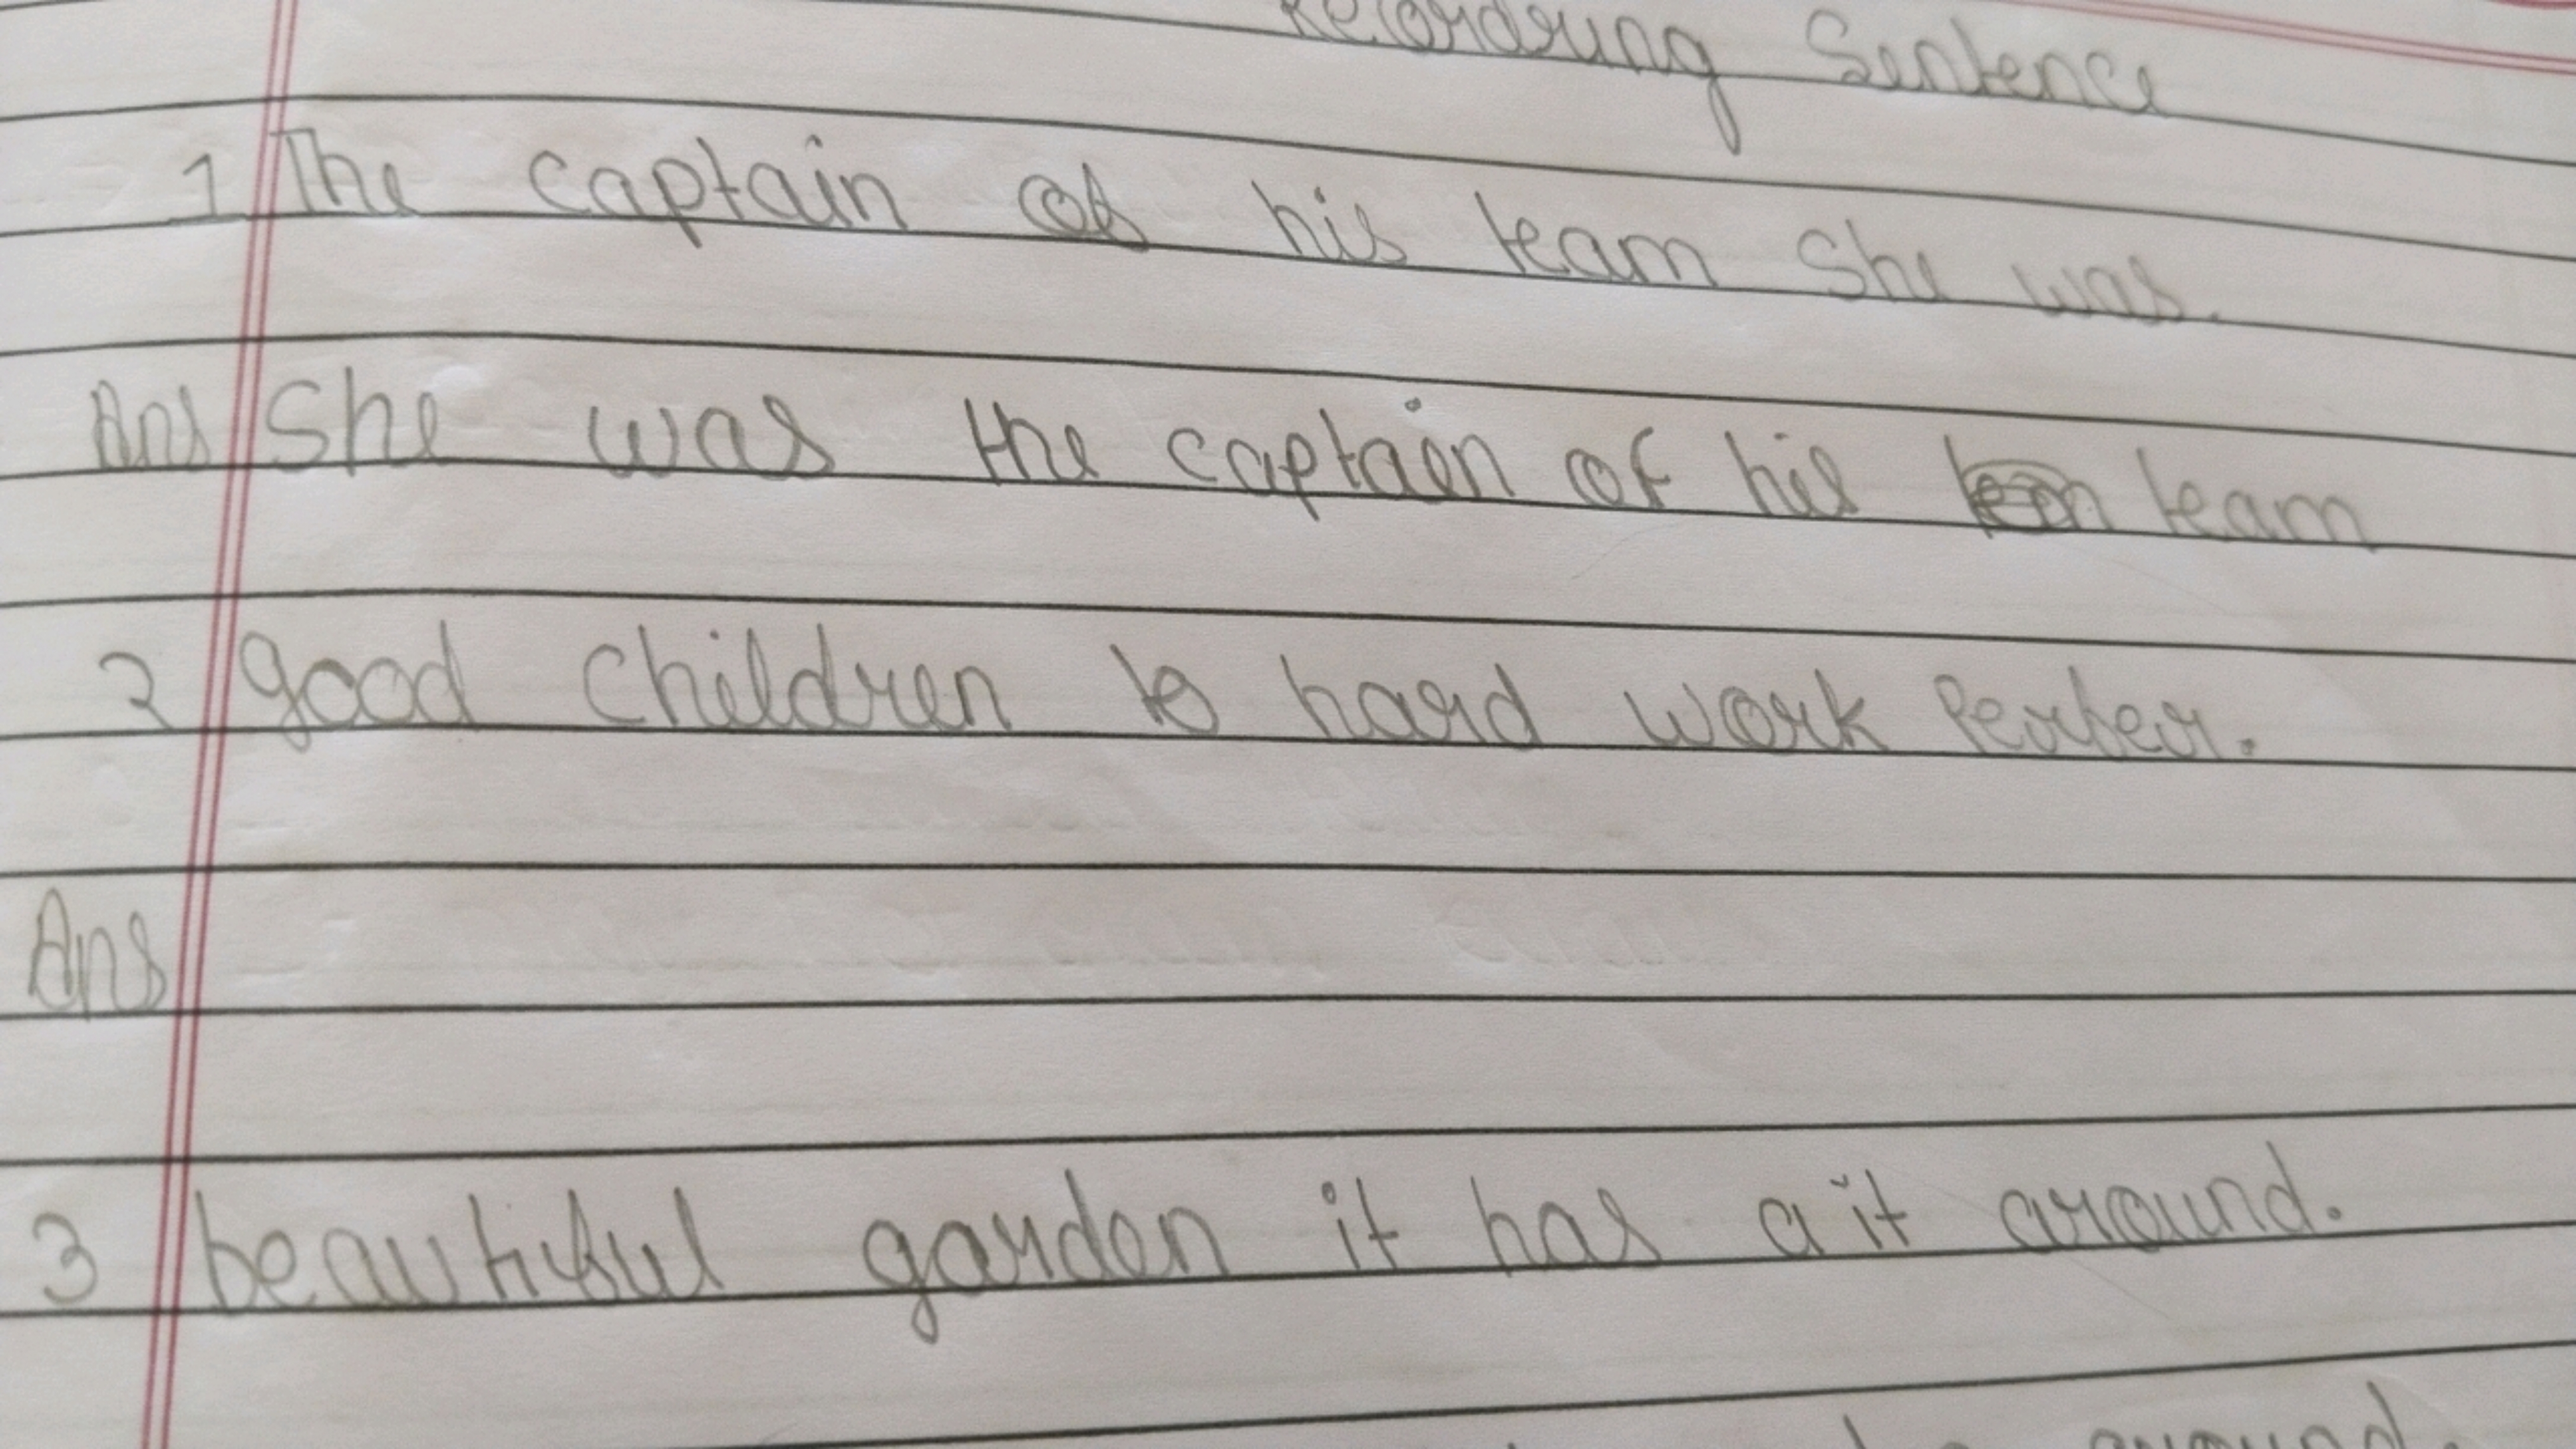 Recordrung Sentence
1 The captain of his team She was.
Ans She was the captain of his team
2 good children to hard work Perfer.
Ans
3 beautiful garden it has a it around.
around.